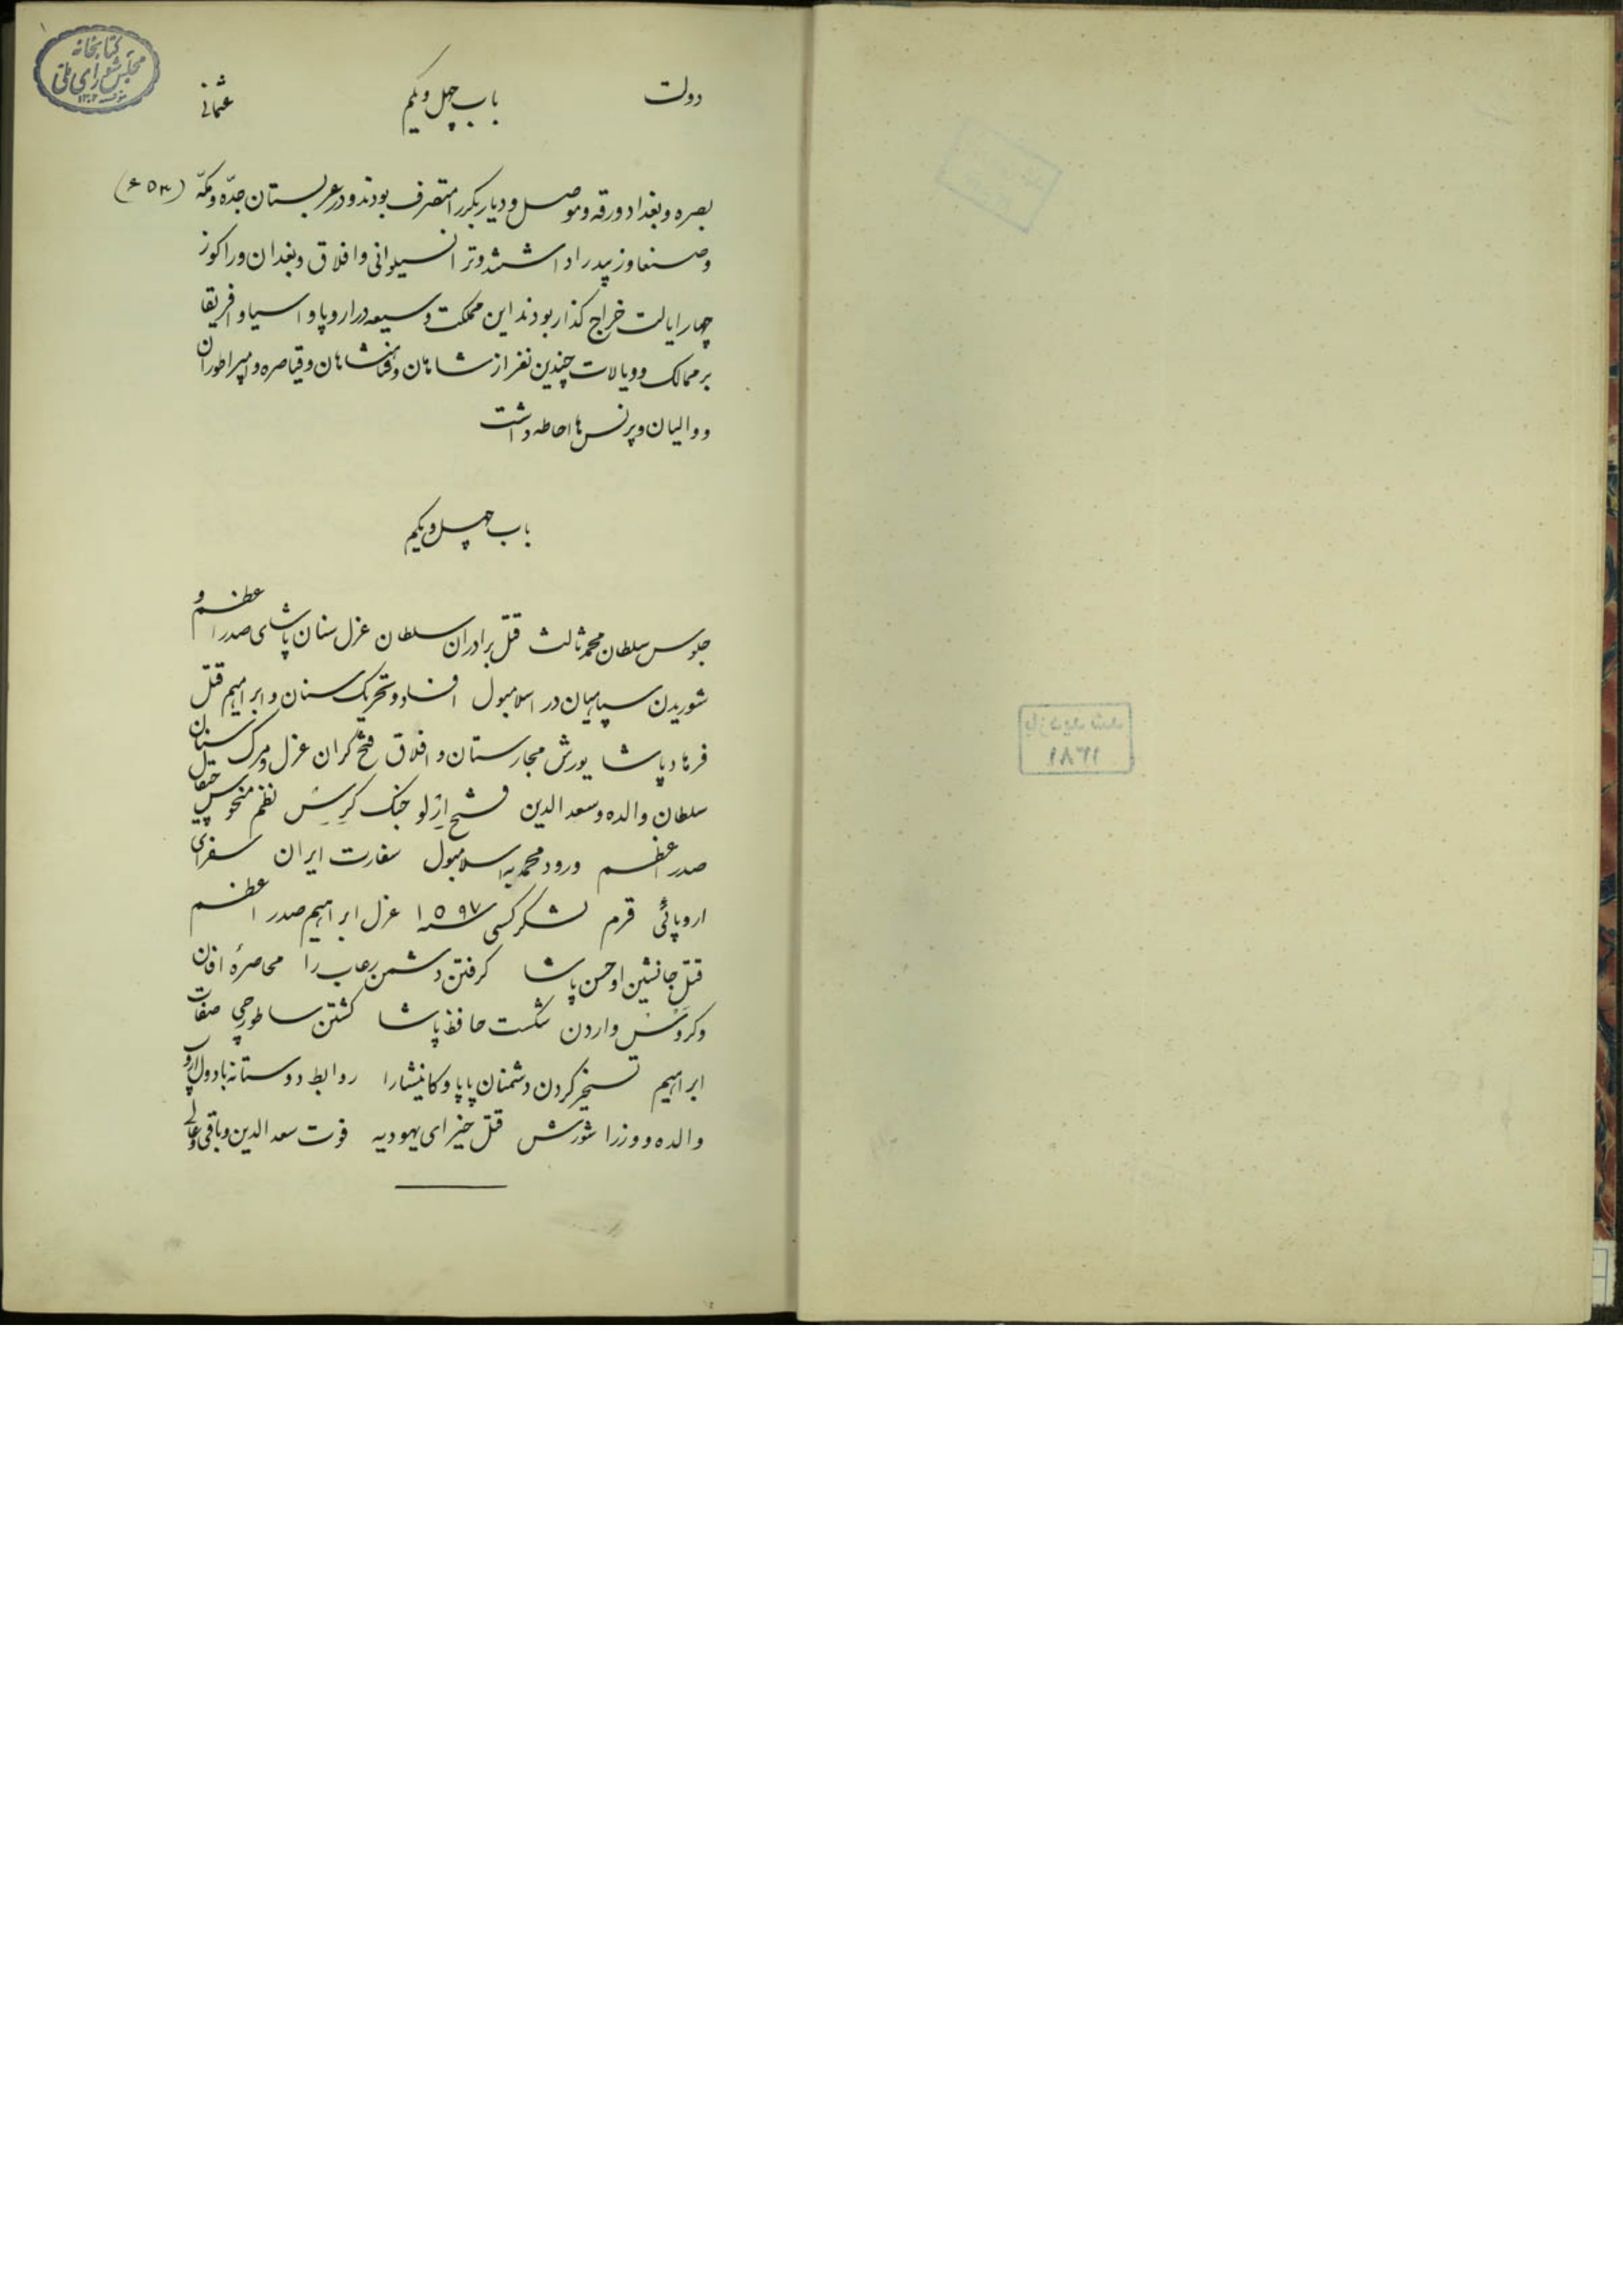 دولت
باب چهل و یکم
عثمانی
کتابخانه
مجلس شورای ملی
بصره و بغداد و رقه و موصل و دیار بکر را متصرف بودند و در عربستان جدّه و مکّه
وصنعا و زبید را داشتند و ترانسیلوانی و افلاق و بغدان و راکوز
چهار ایالت خراج کذار بودند این مملکت وسیعه در اروپا و اسیا و افریقا
بر ممالک و ویالات چندین نفر از شاهان و شاهنشاهان و قیاصره و امپراطوران
و والیان و پرنس ها احاطه داشت
باب چهل و یکم
جلوس سلطان محمد ثالث قتل برادران سلطان عزل سنان پاشای صدر اعظم و
شوریدن سپاهیان در اسلامبول افساد و تحریک سنان و ابراهیم قتل
فرهاد پاشا یورش مجارستان و افلاق فتح کران عزل و مرک سنان
سلطان والده و سعد الدین فتح ارلو جنک کرسش نظم منحوس
صدر اعظم ورود محمد به اسلامبول سفارت ایران سفرای
اروپائی قرم لشکرکسی سنه ۱۵۹۷ عزل ابراهیم صدر اعظم
قتل جانشین او حسن پاشا کرفتن دشمن رعاب را محاصرهٔ افان
وکروس واردن شکست حافظ پاشا کشتن ساطورجی صفات
ابراهیم تسخیر کردن دشمنان پاپا و کانیشارا روابط دوستانه با دول اروپ
والده و وزرا شورش قتل خیرای یهودیه فوت سعد الدین و باقی و عالی
بازدید شد
۱۳۸۱